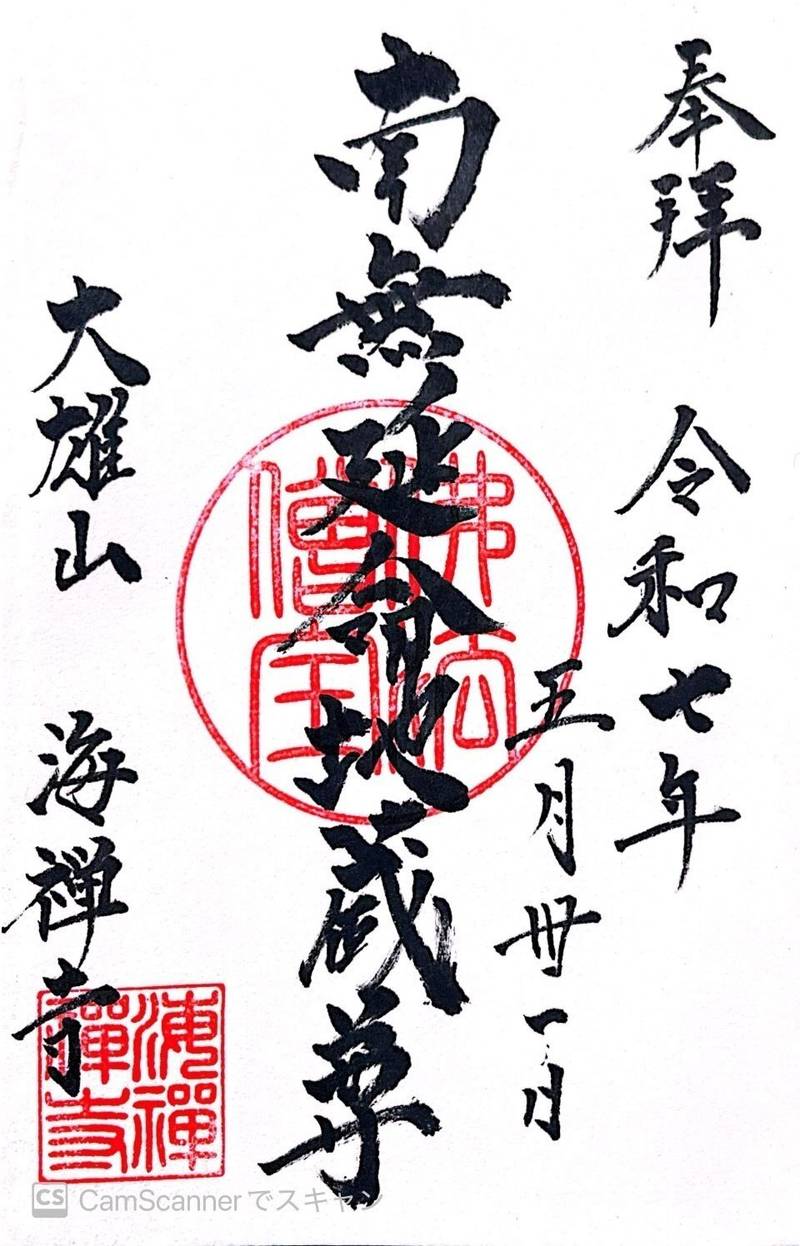 奉拝　令和七年
五月卅一日
南無延命地蔵尊
佛法僧宝
大雄山　海禅寺
海禪禪寺
CS CamScannerでスキャン